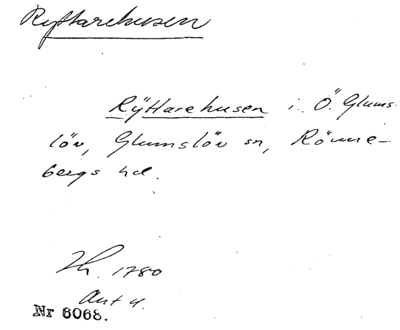 Ryttarehusen
Rÿttarehusen i Ö. Glums-
löv, Glumslöv sn, Rönne-
bergs hd.
Zh. 1780
Ant 4.
Nr 6068.